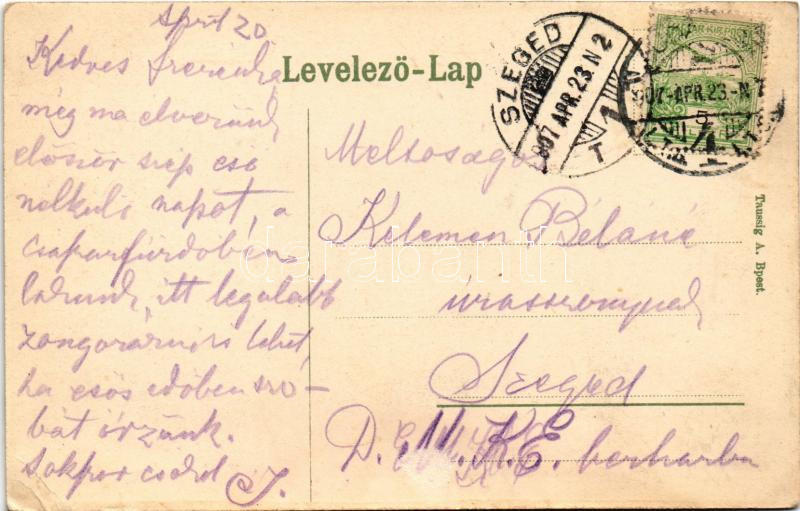 April 20
Kedves
még ma elverünk
először szép eső
nélküli napot, a
csaszarfürdőben
lakunk, itt legalább
zongorázni is lehet,
ha esős időben szo-
bát őrzünk.
Sokszor csókol J.
Levelező-Lap
SZEGED
907 APR. 23. N 2
T 1
907 APR. 23. N 7
Méltóságos
Kelemen Béláné
úriasszonynak
Szeged
D. M. K. E. berharba
Taussig A. Bpest.
darabanth